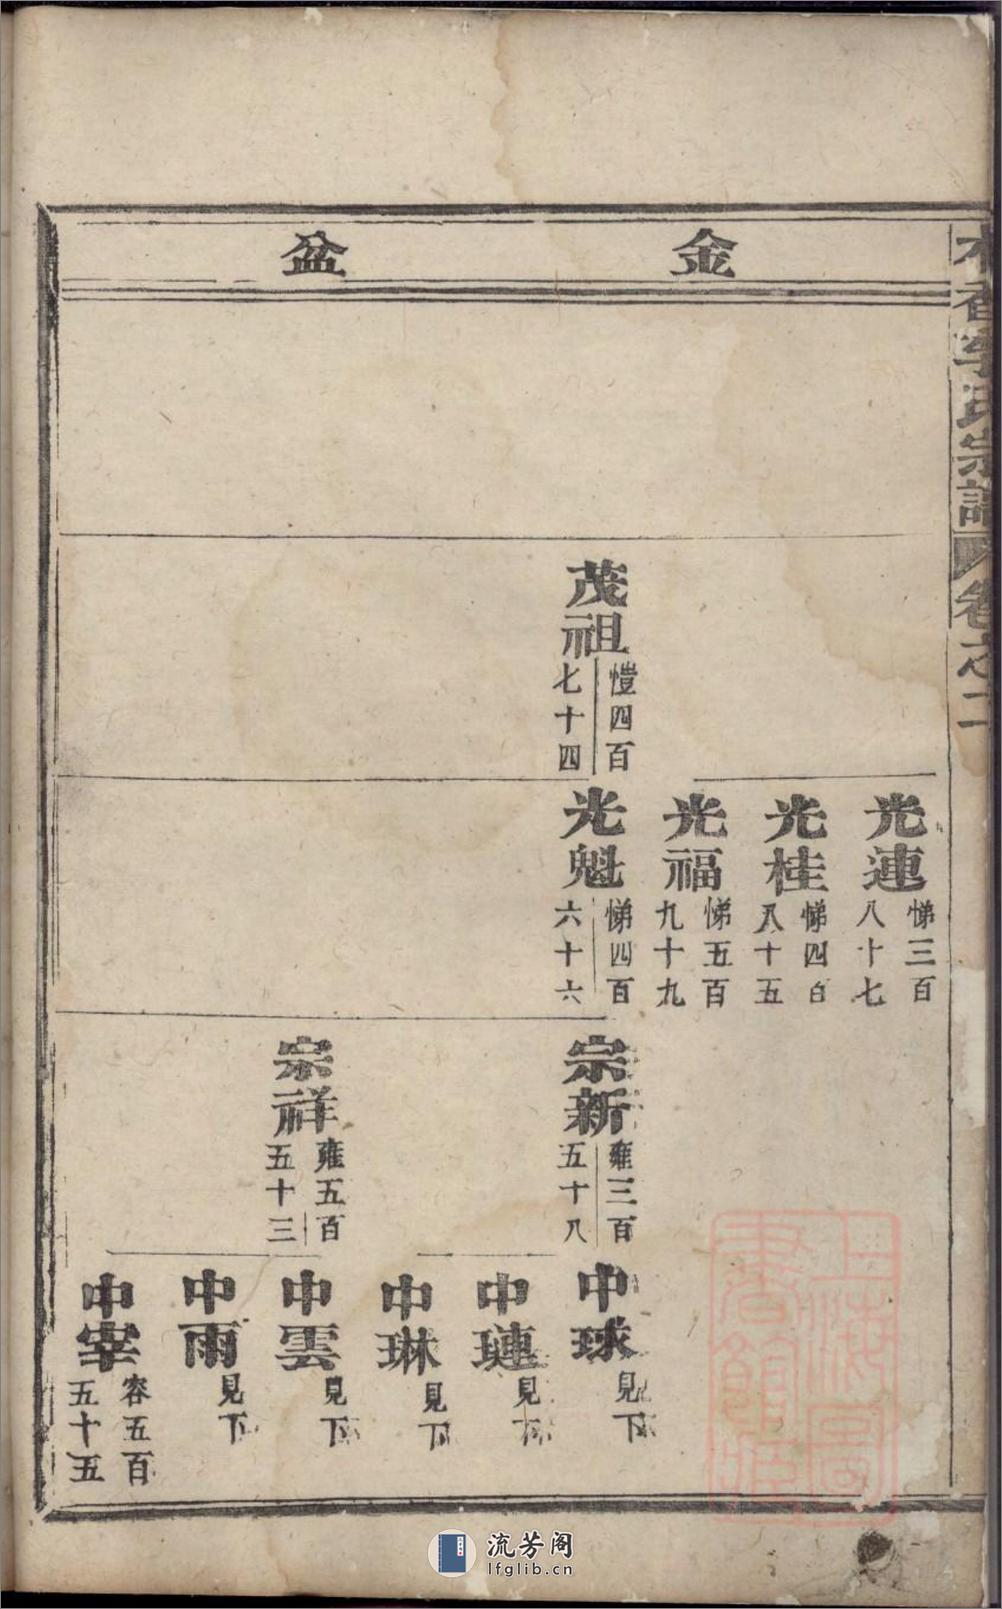 金盆
香李氏宗譜 卷之二
茂祖 愷四百七十四
光連 悌三百八十七
光桂 悌四百八十五
光福 悌五百九十九
光魁 悌四百六十六
宗新 雍三百五十八
宗祥 雍五百五十三
中球 見下
中璉 見下
中琳 見下
中雲 見下
中雨 見下
中宰 容五百五十五
上海圖書館藏
流芳阁
lfglib.cn